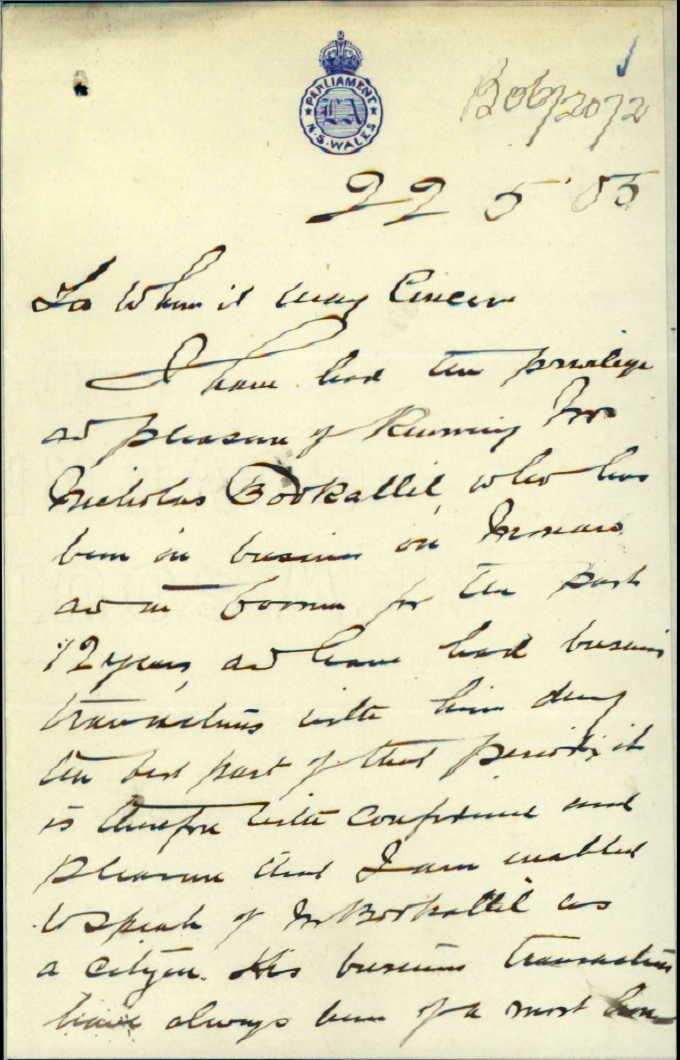 PARLIAMENT
LA
N.S. WALES
22 5 05
To Whom it may Concern
I have had the privilege
and pleasure of Knowing Mr
Nicholas Bookallil, who has
been in business in
and in for the past
12 years, and have had business
transactions with him during
the best part of that period; it
is therefore with confidence and
pleasure that I am enabled
to speak of Mr Bookallil as
a citizen. His business transactions
have always been of a most hon-